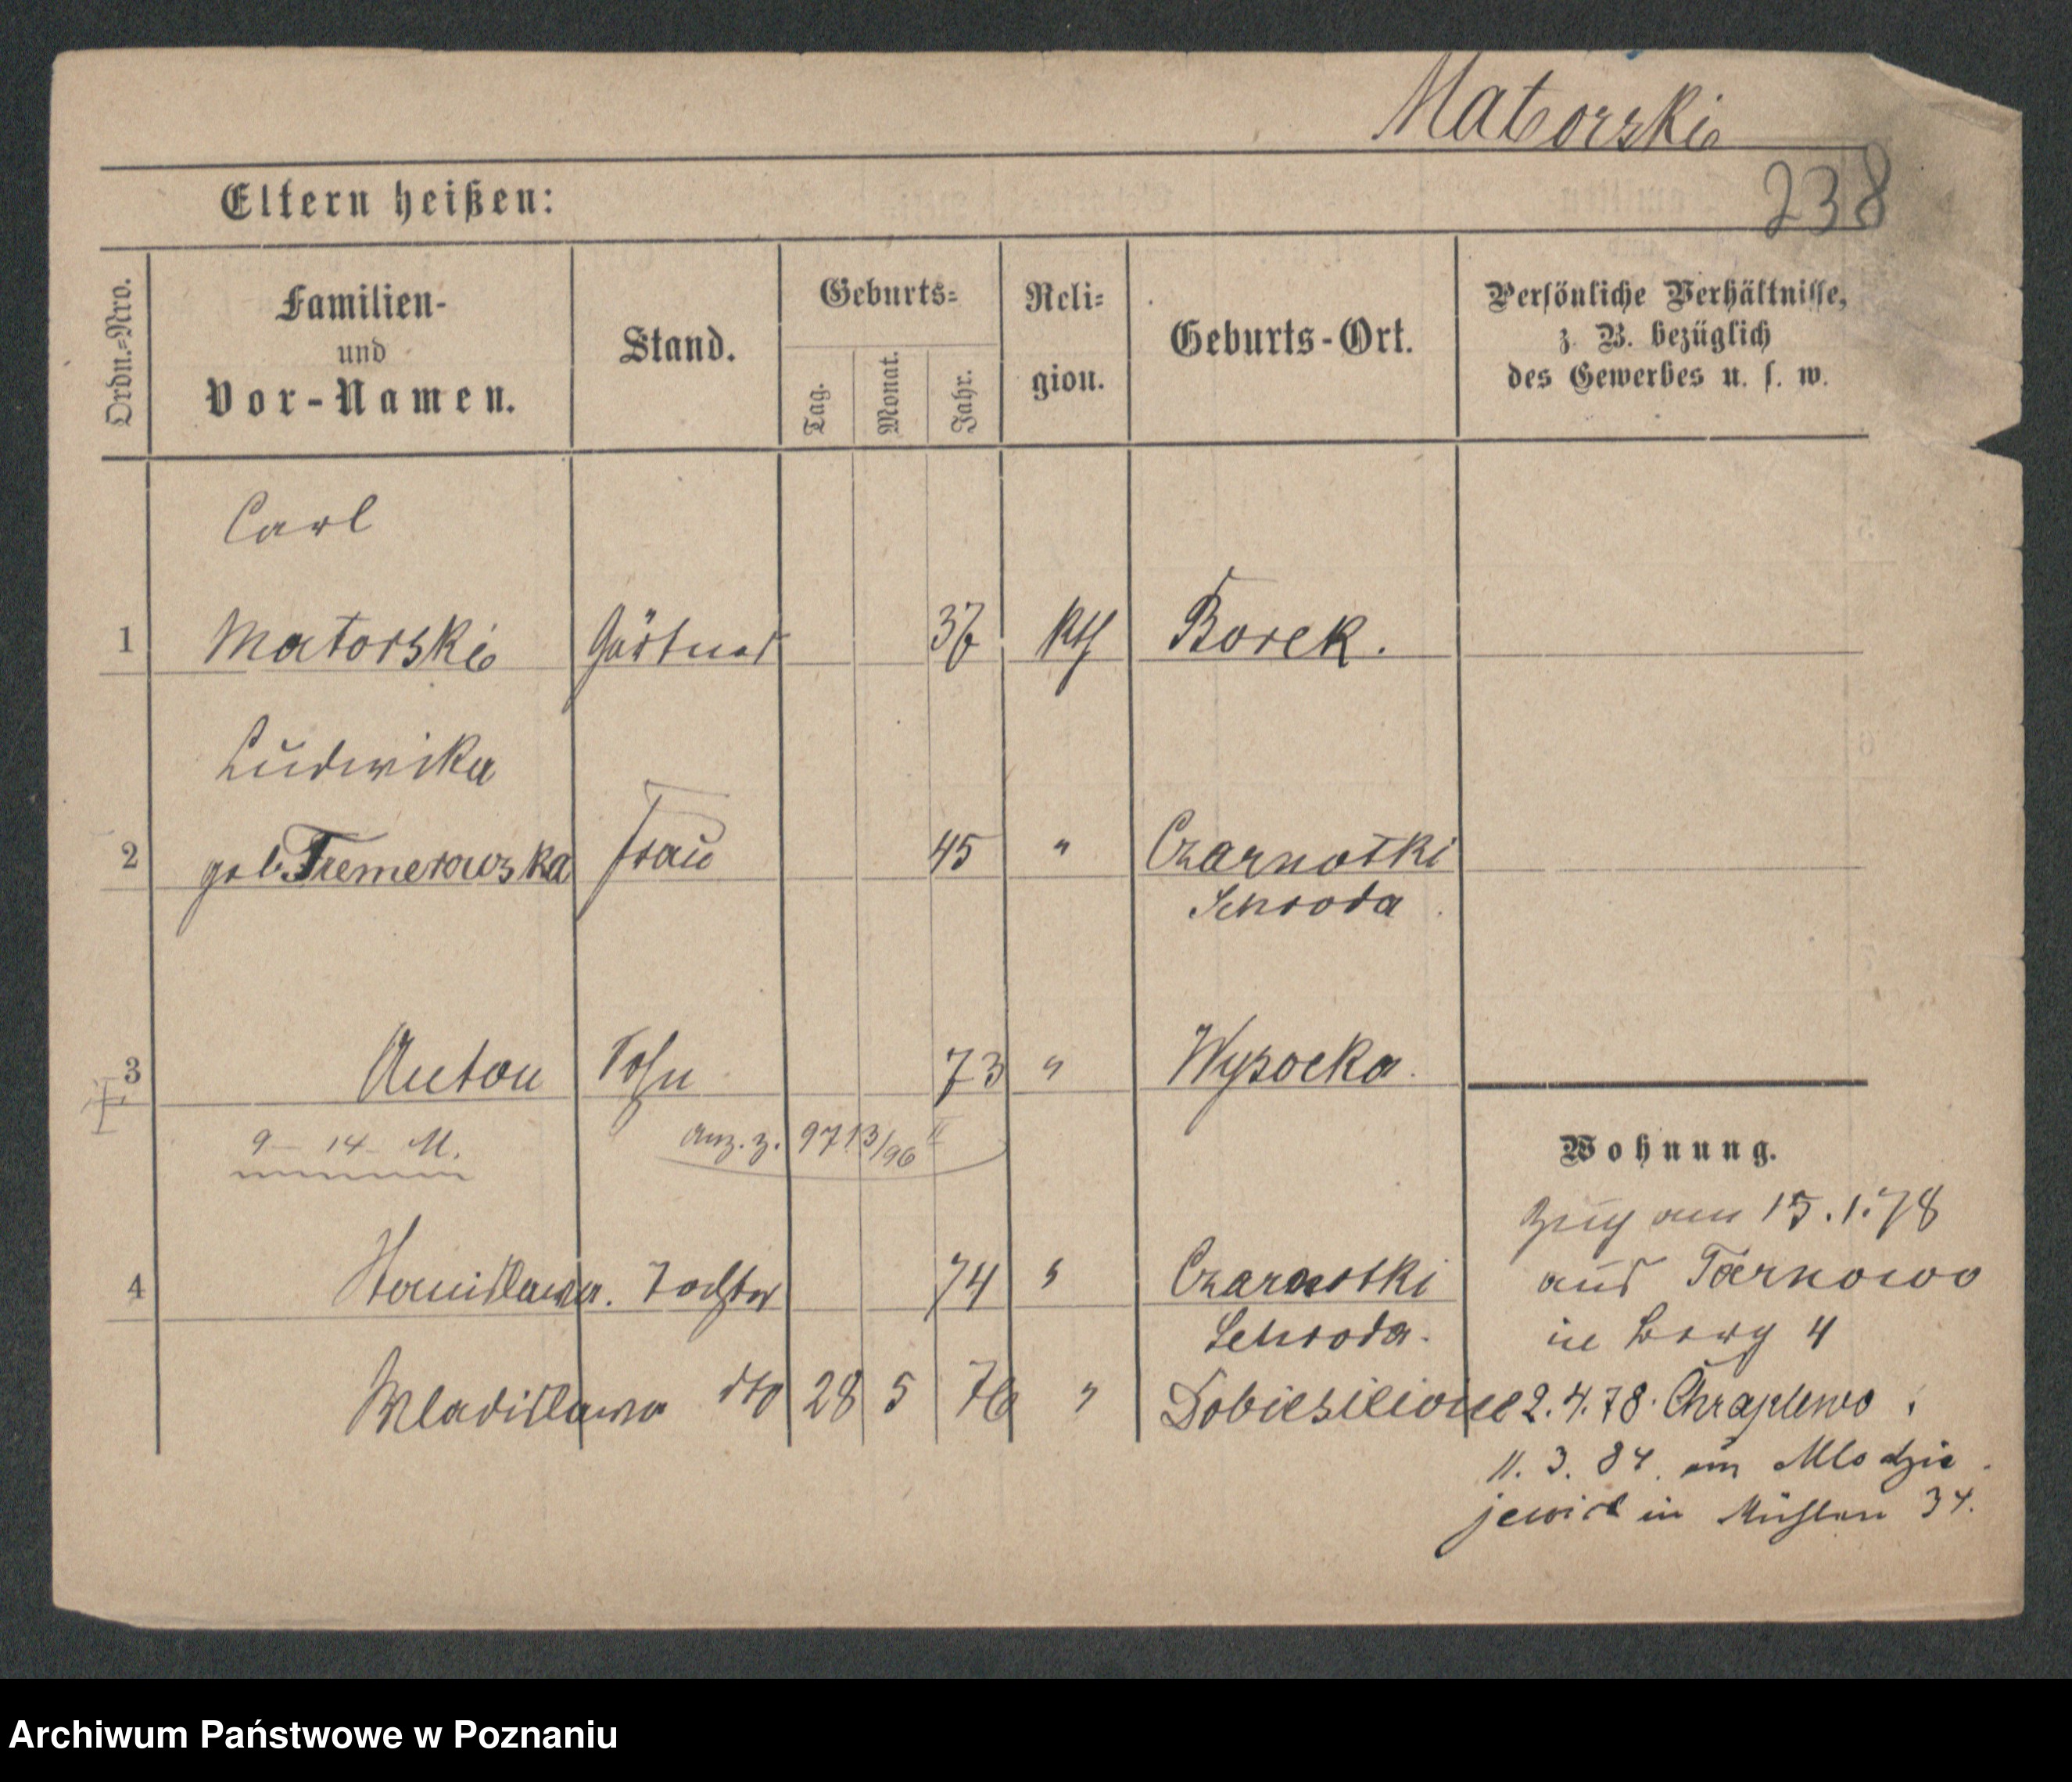 Matorski
238
Eltern heißen:
Ordn.-Nro.
Familien-
und
Vor-Namen.
Stand.
Geburts-
Tag.
Monat.
Jahr.
Reli-
gion.
Geburts-Ort.
Persönliche Verhältnisse,
z. B. bezüglich
des Gewerbes u. s. w.
Carl
1 Matorski Gärtner 36 kth Borek.
Ludwika
2 geb. Frau 45 " Czarnotki
Schroda
3 Anton Sohn 73 " Wysocka.
9 - 14 M. Anz. z. 9713/96 II
Wohnung.
Zug am 15.1.78
4 Stanislawa. Tochter 74 " Czarnotki
Schroda.
aus Tarnowo
in Berg 4
Wladislawa dto 28 5 76 "
2.4.78. Chraplewo
11. 3. 84. Mlodzie
jewic in Mühlen 34.
Archiwum Państwowe w Poznaniu